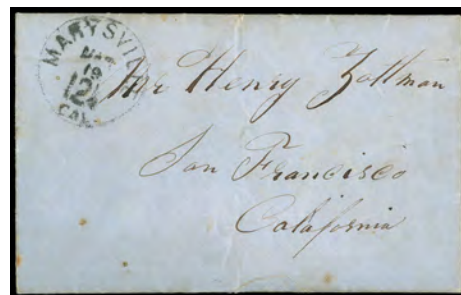 MARYSVIL
MAY
19
12½
CAL.
Mr Henry Zollman
San Francisco
Calafornia